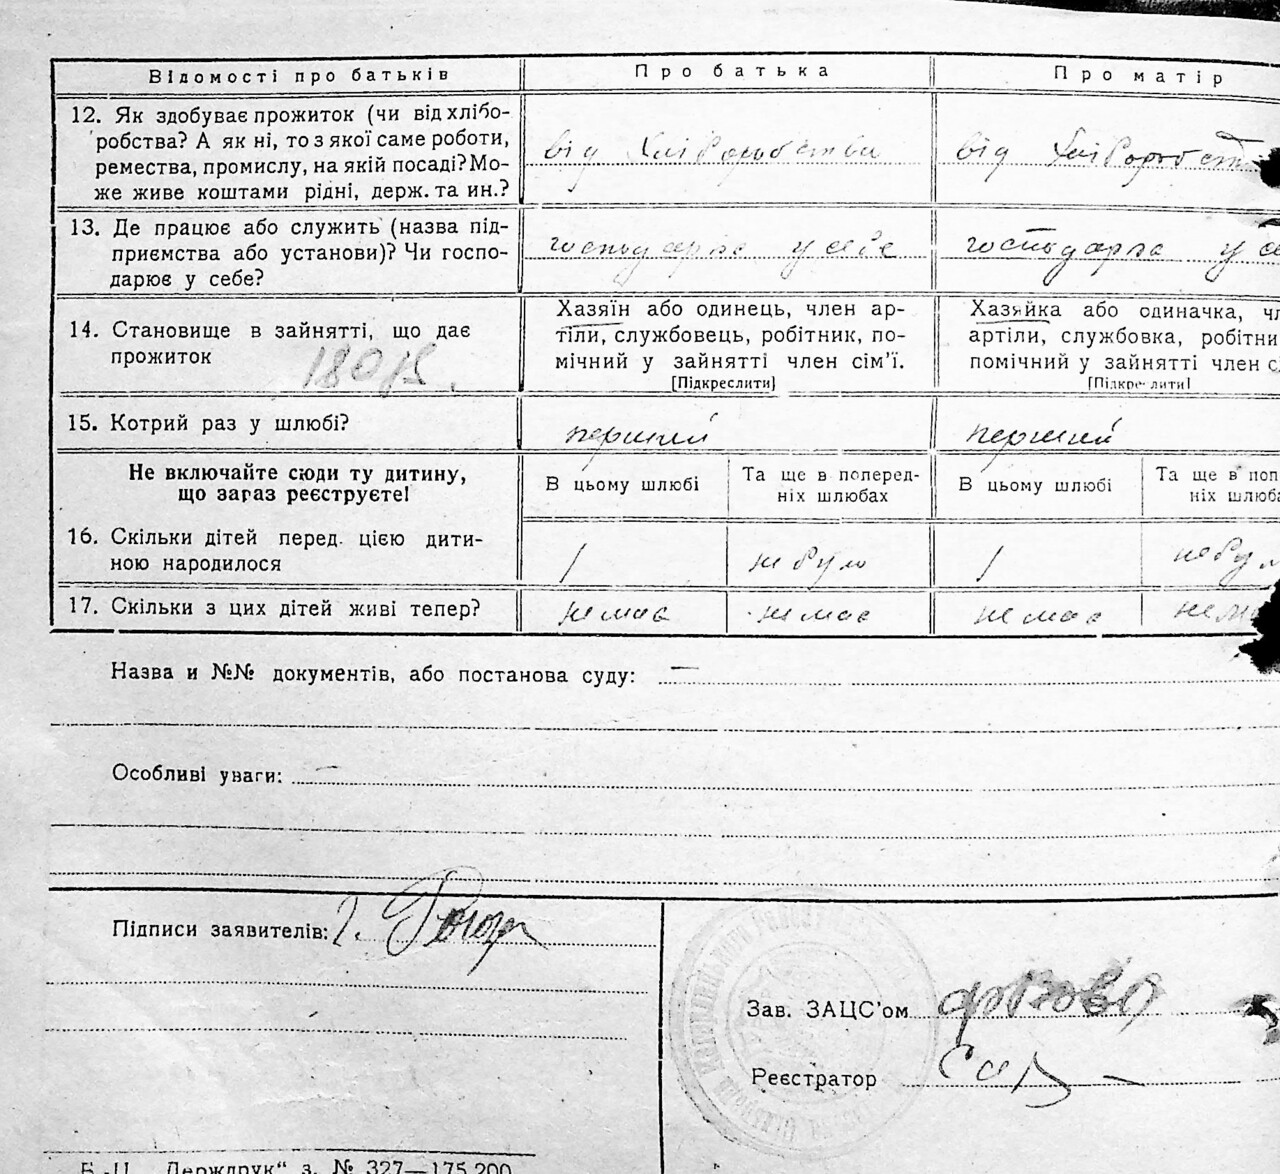 Відомості про батьків Про батька Про матір
12. Як здобуває прожиток (чи від хлібо-
робства? А як ні, то з якої саме роботи,
ремества, промислу, на якій посаді? Мо-
же живе коштами рідні, держ. та ин.?
від хліборобства від хліборобст
13. Де працює або служить (назва під-
приємства або установи)? Чи госпо-
дарює у себе?
господарка у себе господарка у се
14. Становище в зайнятті, що дає
прожиток
Хазяїн або одинець, член ар-
тіли, службовець, робітник, по-
мічний у зайнятті член сім'ї.
[Підкреслити]
Хазяйка або одиначка, чл
артіли, службовка, робітни
помічний у зайнятті член с
[Підкреслити]
15. Котрий раз у шлюбі? перший перший
Не включайте сюди ту дитину,
що зараз реєструєте!
В цьому шлюбі Та ще в поперед-
ніх шлюбах В цьому шлюбі Та ще в поп
ніх шлюба
16. Скільки дітей перед цією дити-
ною народилося
1 не було 1 не було
17. Скільки з цих дітей живі тепер? немає немає немає нема
Назва и №№ документів, або постанова суду: —
Особливі уваги: —
Підписи заявителів:
Зав. ЗАЦС'ом
Реєстратор
Б.-Ц. „Держдрук“ з. № 327—175.200